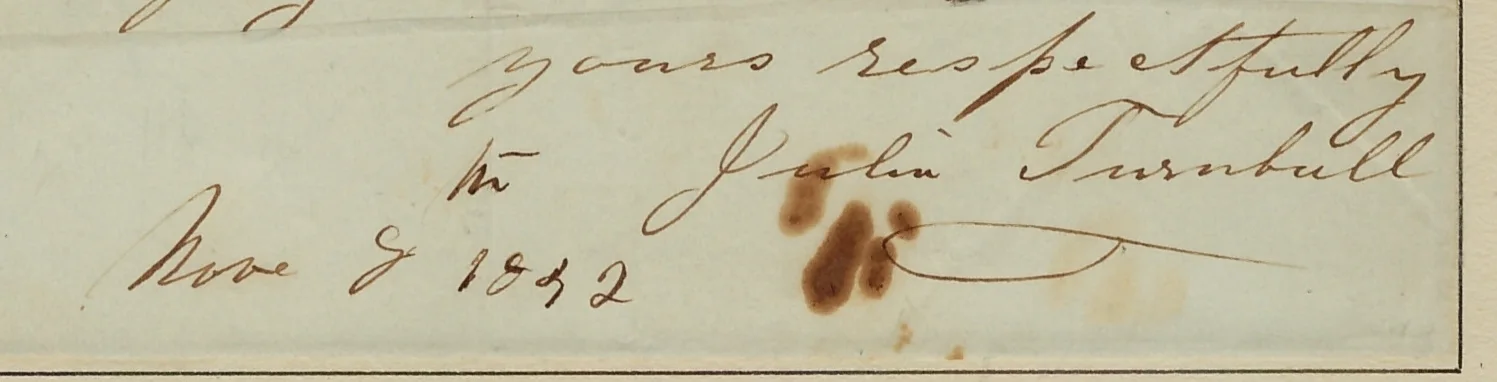 yours respectfully
Julia Turnbull
Nove 8 1842